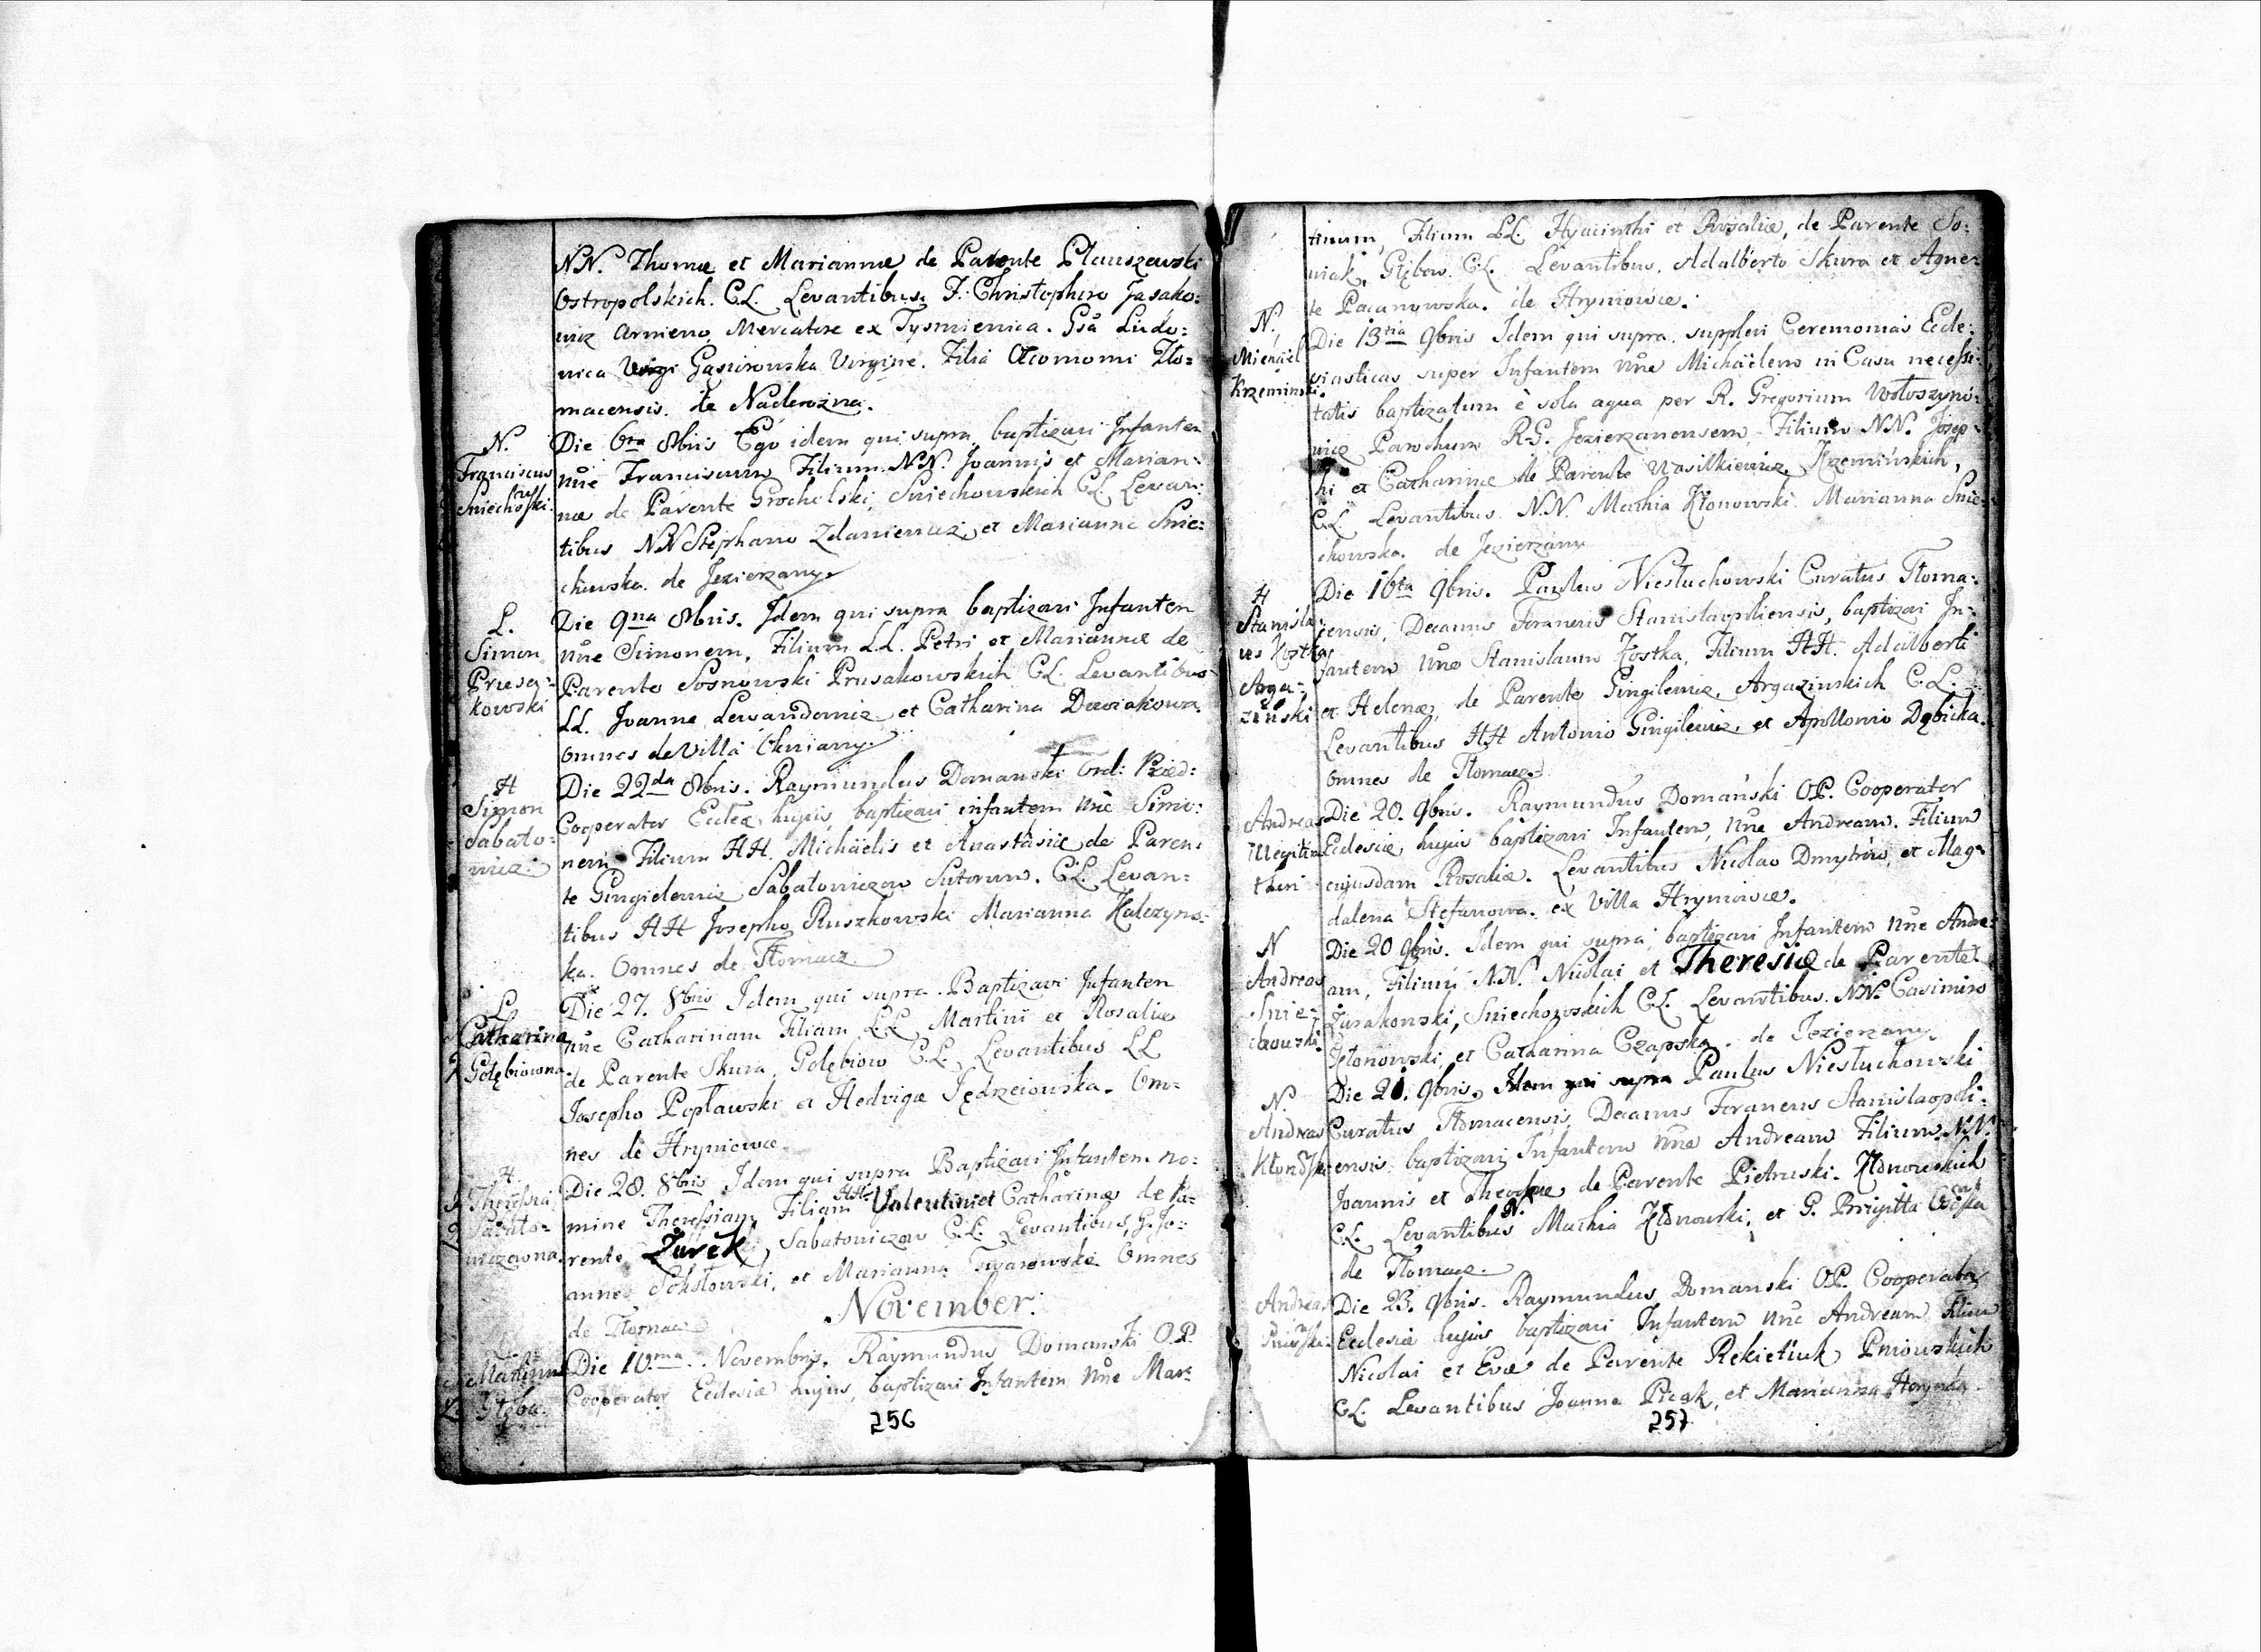 NN. Thomæ et Mariannæ de Parente Plauszewski
Ostropolskich. C.L. Levantibus, F: Christophoro Jasako:
wicz Armeno, Mercatore ex Tysmienica. Gsa Ludo:
vica Virgi Gąsiorowska Virgine. Filia Œconomi Tło:
macensis. de Naderożna.
N.
Franciscus
Sniechowski.
Die 6ta 8bris Ego idem qui supra baptizavi Infantem
nñe Franciscum Filium NN. Joannis et Marian:
næ de Parente Grochelski, Sniechowskich C.L. Levan:
tibus NN Stephano Zdaniewicz, et Marianna Snie:
chowska. de Jezierzany
L.
Simon
Prusa:
kowski
Die 9na 8bris. Idem qui supra baptizavi Infantem
nñe Simonem, Filium LL. Petri et Mariannæ de
Parente Sosnowski Prusakowskich C.L. Levantibus
LL. Joanne Lewandowicz et Catharina
omnes de Villa Okniany.
H
Simon
Sabato:
wicz.
Die 22da 8bris. Raymundus Domanski Ord: Præd:
Cooperator Eccleæ hujus baptizavi infantem nñe Simo:
nem Filium HH. Michaëlis et Anastasiæ de Paren:
te Gingielewicz Sabatowiczow Sutorum. C.L. Levan:
tibus HH Josepho Ruszkowski Marianna Halczyns:
ka. Omnes de Tłomacz
L.
Catharina
Gołębiowna.
Die 27. 8bris Idem qui supra. Baptizavi Infantem
nñe Catharinam Filiam LL Martini et Rosaliæ
de Parente Skura, Gołębiow C.L. Levantibus LL
Josepho Popławski et Hedviga Jędrzeiowska. Om:
nes de Hryniowce
H.
Theressia
Sabato:
wiczowna.
Die 28. 8bris Idem qui supra Baptizavi Infantem no:
mine Theressiam Filiam HH. Valentini et Catharinæ de Pa:
rente Żurek, Sabatowiczow C.L. Levantibus, G. Jo:
anne Sokołowski, et Marianna Omnes
de Tłomacz
November.
Martinus
Głęba.
Die 10ma. Novembris. Raymundus Domanski O.P.
Cooperator Ecclesiæ hujus, baptizavi Infantem nñe Mar:
256
tinum, Filium LL. Hyacinthi et Rosaliæ, de Parente So:
wiak, Głębow. C.L. Levantibus. Adalberto Skura et Agne:
te Pacanowska. de Hryniowce.
N.
Michael
Krzeminski.
Die 13tia 9bris Idem qui supra. supplevi Ceremonias Eccle:
siasticas super Infantem nñe Michaëlem in Casu necessi:
tatis baptizatum è sola aqua per R. Gregorium Wołoszyno:
wicz Parochum R.G. Jezierzanensem Filium NN. Josep:
hi et Catharinæ de Parente Wasilkiewicz, Krzemińskich,
C.L. Levantibus. N.N. Mathia Kłonowski. Marianna Snie:
chowska. de Jezierzany
H
Stanisla:
us Kostka
Arga:
zinski
Die 16ta 9bris. Paulus Niesłuchowski Curatus Tłoma:
censis, Decanus Foraneus Stanislaopoliensis, baptizavi In:
fantem nñe Stanislaum Kostka, Filium HH. Adalberti
et Helenæ, de Parente Gingilewicz, Argazinskich C.L.
Levantibus HH Antonio Gingilewicz, et Apollonia Dębicka.
omnes de Tłomacz
Andreas
illegitimi
thori
Die 20. 9bris. Raymundus Domański OP. Cooperator
Ecclesiæ hujus baptizavi Infantem, nñe Andream. Filium
cujusdam Rosaliæ. Levantibus Nicolao Dmytriw, et Mag:
dalena Stefanowa. ex Villa Hryniowce.
N
Andreas
Snie:
chowski
Die 20 9bris. Idem qui supra, baptizavi Infantem nñe Andre:
am, Filium N.N. Nicolai et Theresiæ de Parente
Żurakowski, Sniechowskich C.L. Levantibus. NN. Casimiro
Kłonowski, et Catharina Czapska. de Jezierzany
N.
Andreas
Kłonowski
Die 21. 9bris. Idem qui supra Paulus Niesłuchowski
Curatus Tłomacensis, Decanus Foraneus Stanislaopoli:
ensis baptizavi Infantem nñe Andream Filium NN.
Joannis et Theodoræ de Parente Pietruski. Kłonowskich
C.L. Levantibus N. Mathia Kłonowski, et G. Brigitta
de Tłomacz
Andreas
Die 23. 9bris. Raymundus Domanski O.P. Cooperator
Ecclesiæ hujus baptizavi Infantem nñe Andream Filium
Nicolai et Evæ de Parente Rekietiuk Pniowskich
C.L. Levantibus Joanne Picak, et Marianna Horynka.
257